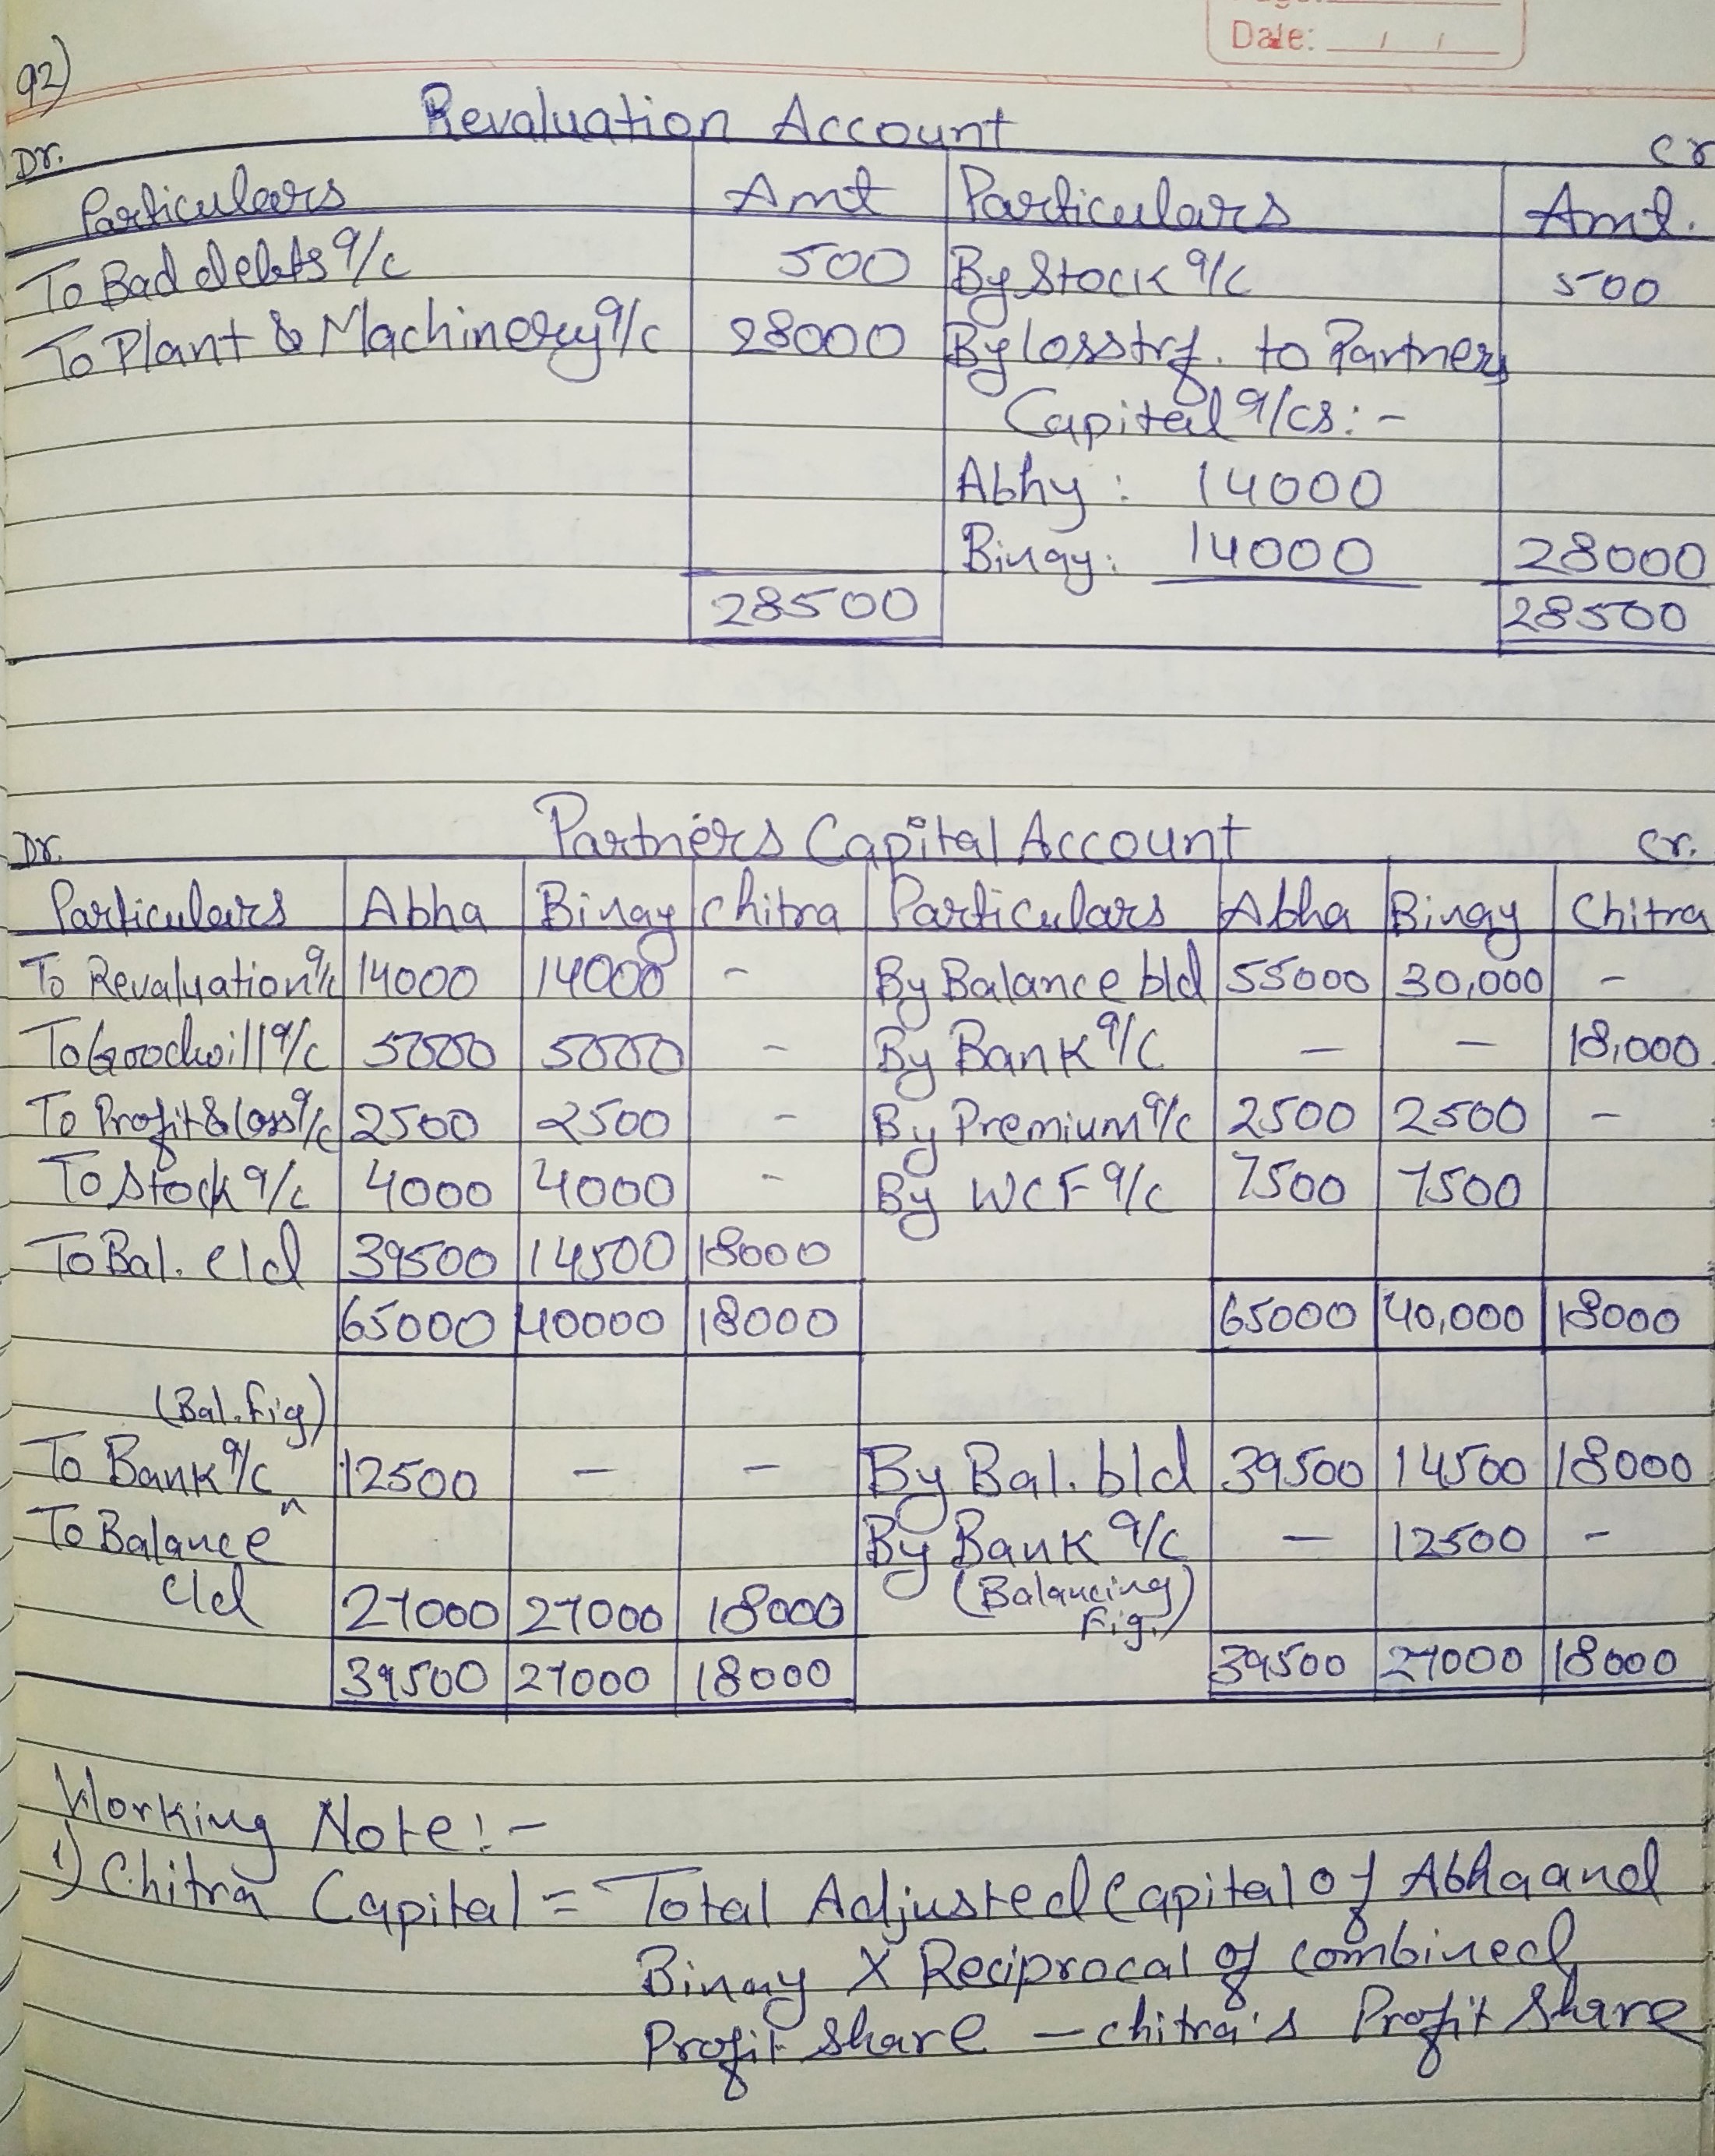 Date: / /
92)
Revaluation Account
Dr. Cr
Particulars Amt Particulars Amt.
To Bad debts a/c 500 By Stock a/c 500
To Plant & Machinery a/c 28000 By loss trf. to Partners
Capital a/cs:-
Abhy : 14000
Binay: 14000 28000
28500 28500
Partners Capital Account
Dr. Cr.
Particulars Abha Binay Chitra Particulars Abha Binay Chitra
To Revaluation a/c 14000 14000 - By Balance b/d 55000 30,000 -
To Goodwill a/c 5000 5000 - By Bank a/c - - 18,000
To Profit & loss a/c 2500 2500 - By Premium a/c 2500 2500 -
To Stock a/c 4000 4000 - By WCF a/c 7500 7500
To Bal. c/d 39500 14500 18000
65000 40000 18000 65000 40,000 18000
(Bal. fig)
To Bank a/c 12500 - - By Bal. b/d 39500 14500 18000
To Balance By Bank a/c - 12500 -
c/d 27000 27000 18000 (Balancing
Fig.)
39500 27000 18000 39500 27000 18000
Working Note:-
1) Chitra Capital = Total Adjusted Capital of Abha and
Binay X Reciprocal of combined
Profit Share - chitra's Profit Share